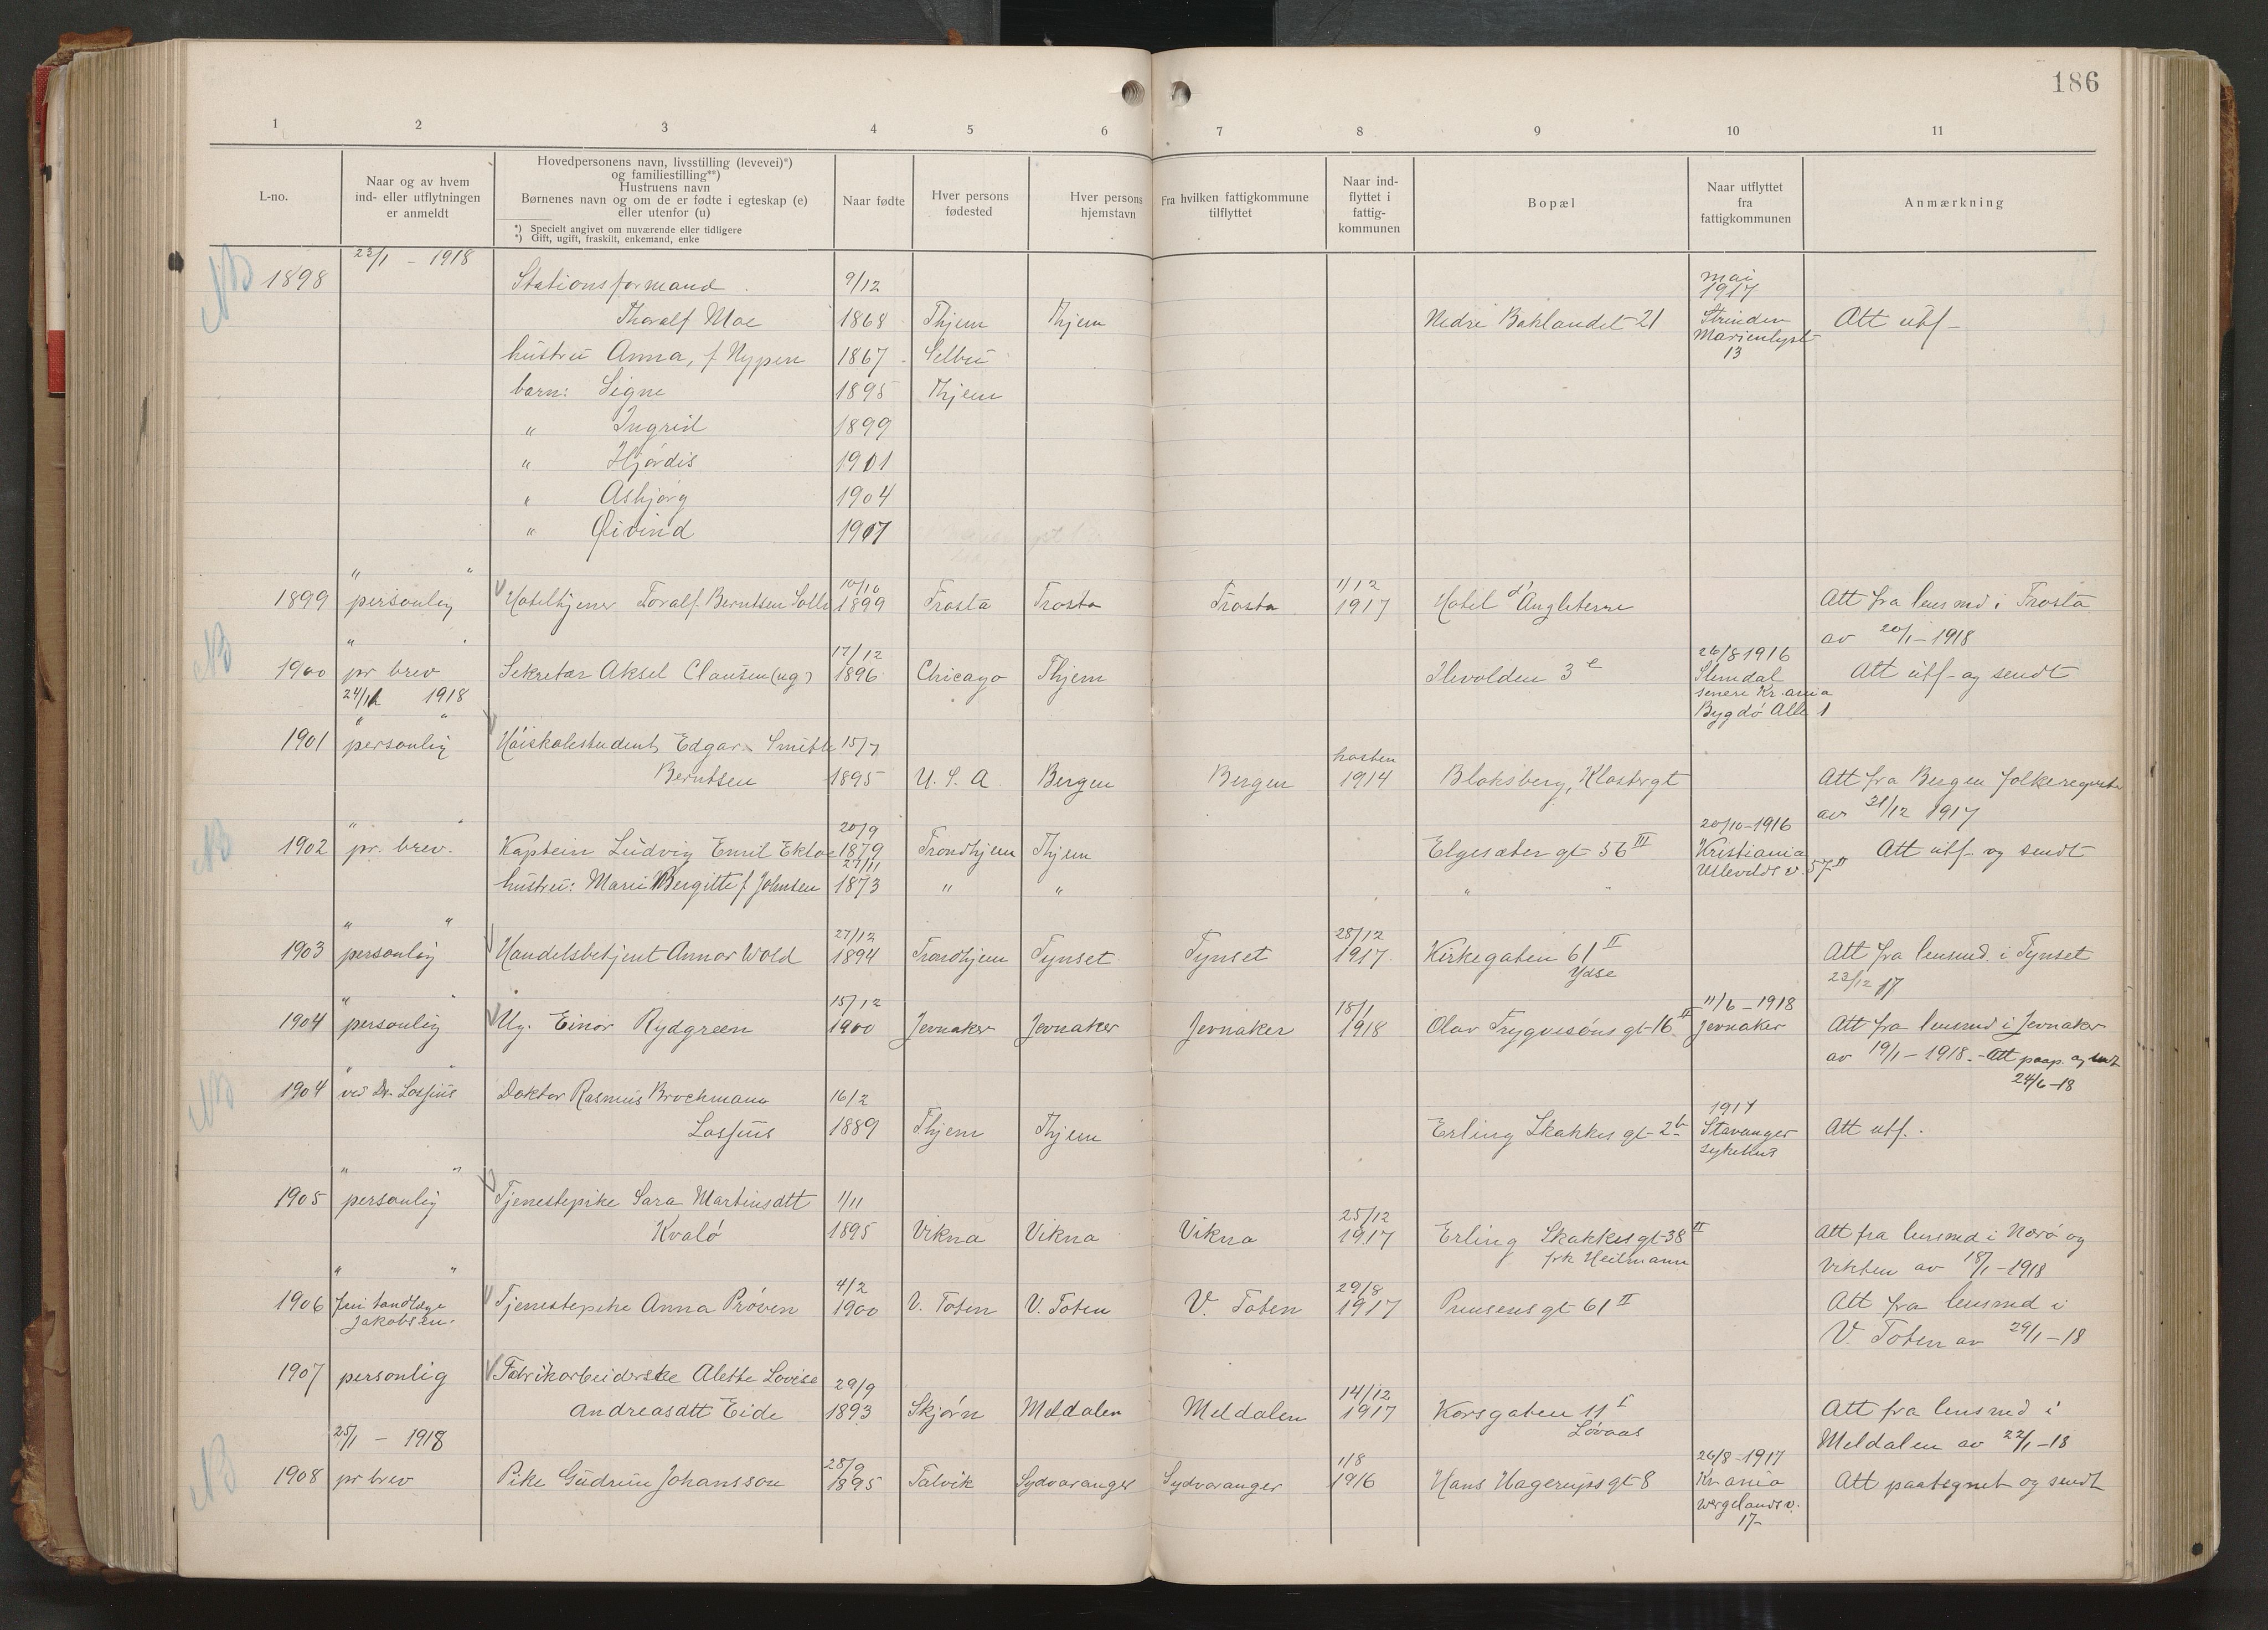 186
1 2 3 4 5 6 7 8 9 10 11
L-no.
Naar og av hvem
ind- eller utflytningen
er anmeldt
Hovedpersonens navn, livsstilling (levevei)*)
og familiestilling**)
Hustruens navn
Børnenes navn og om de er fødte i egteskap (e)
eller utenfor (u)
*) Specielt angivet om nuværende eller tidligere
*) Gift, ugift, fraskilt, enkemand, enke
Naar fødte
Hver persons
fødested
Hver persons
hjemstavn
Fra hvilken fattigkommune
tilflyttet
Naar ind-
flyttet i
fattig-
kommunen
Bopæl
Naar utflyttet
fra
fattigkommunen
Anmærkning
23/1 - 1918
NB 1898 Stationsformand 9/12 mai 1917
Thoralf Moe 1868 Thjem Thjem Nedre Baklandet 21 Strinden Att utf-
Marienlyst
13
hustru Anna, f Nypen 1867 Selbu
barn: Signe 1895 Thjem
" Ingrid 1899
" Hjørdis 1901
" Asbjørg 1904
" Øivind 1907
" " 10/10 1/12
1899 personlig Hotelhjener Toralf Berntsen 1899 Frosta Frosta Frosta 1917 Hotel d'Angleterre Att fra lensmd i Frosta
av 20/1-1918
" " 17/12 26/8 1916
NB 1900 pr brev Sekretær Aksel Clausen (ug) 1896 Chicago Thjem Ilevolden 3 e Slemdal Att utf- og sendt
senere Kr.ania
Bygdø Alle 1
24/1 1918
" "
1901 personlig Høiskolestudent Edgar Smith 15/7 høsten
Berntsen 1895 U.S.A Bergen Bergen 1914 Bloksberg, Klostergt Att fra Bergen folkeregister
av 31/12 1917
" " 20/9 20/10-1916
NB 1902 pr. brev. Kaptein Ludvig Emil 1879 Trondhjem Thjem Elgesæter gt 56 III Kristiania Att utf- og sendt
Ullevolds v. 57 II
27/11
hustru: Marie Bergitte f Johnsen 1873 " " " "
" " 27/12 28/12
1903 personlig Handelsbetjent Annar Wold 1894 Trondhjem Tynset Tynset 1917 Kirkegaten 61 II Att fra lensmd. i Tynset
Ydse 23/12 17
" " 15/12 18/1 11/6-1918
1904 personlig Ug. Einar Rydgreen 1900 Jevnaker Jevnaker Jevnaker 1918 Olav Trygvesøns gt 16 II Jevnaker Att fra lensmd i Jevnaker
av 19/1-1918.- Att paap. og sendt
24/6-18
" "
NB 1904 ved Dr. Lossius Doktor Rasmus Brochmann 16/2 1917
Lossius 1889 Thjem Thjem Erling Skakkes gt 2b Stavanger Att utf.
sykehus
" "
1905 personlig Tjenestepike Sara Martinsdtt 1/11 25/12
Kvalø 1895 Vikna Vikna Vikna 1917 Erling Skakkes gt 38 II Att fra lensmd i Nærø og
frk Heilmann Vikten av 18/1-1918
" " 4/2 29/8
1906 Fru tandlæge Tjenestepike Anna Prøven 1900 V. Toten V. Toten V. Toten 1917 gt 61 II Att fra lensmd i
Jakobsen. V. Toten av 29/1-18
1907 personlig Fabrikarbeiderske Alette Lovise 29/9 14/12
Andreasdtt Eide 1893 Skjørn Meldalen Meldalen 1917 Korsgaten 11 I Att fra lensmd i
Løvaas Meldalen av 22/1-18
25/1 - 1918 28/9 1/8 26/8-1917
NB 1908 pr brev Pike Gudrun Johansson 1895 Talvik Sydvaranger Sydvaranger 1916 Hans Hagerups gt 8 Kr.ania Att paategnet og sendt
Wergelands v.
17-